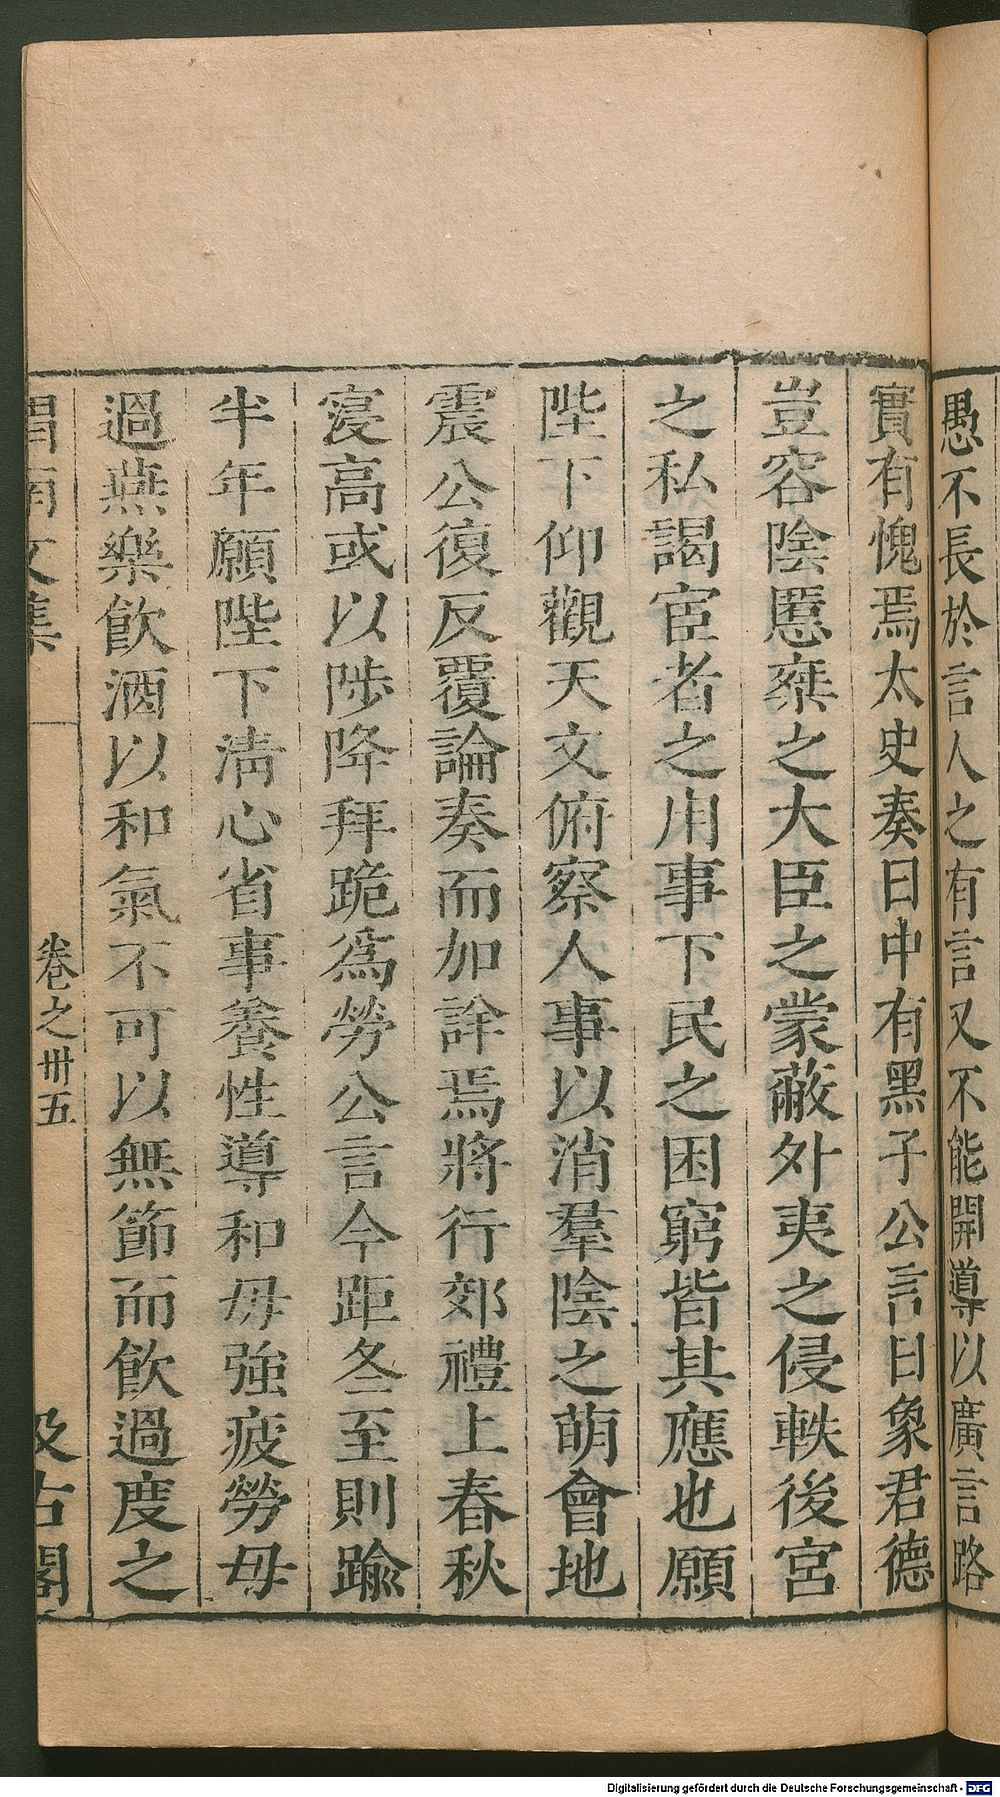 愚不長於言人之有言又不能開導以廣言路
實有愧焉太史奏日中有黑子公言日象君德
豈容陰慝蔽之大臣之蒙蔽外夷之侵軼後宮
之私謁宦者之用事下民之困窮皆其應也願
陛下仰觀天文俯察人事以消羣陰之萌會地
震公復反覆論奏而加詳焉將行郊禮上春秋
寖高或以陟降拜跪爲勞公言今距冬至則踰
半年願陛下清心省事養性導和毋強疲勞毋
過燕樂飲酒以和氣不可以無節而飲過度之
渭南文集
卷之卅五
汲古閣
Digitalisierung gefördert durch die Deutsche Forschungsgemeinschaft - DFG